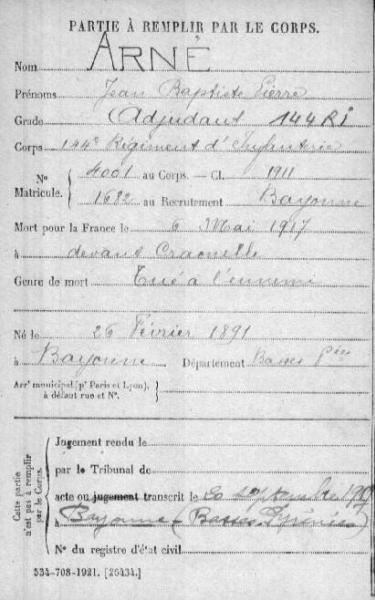 PARTIE À REMPLIR PAR LE CORPS.
Nom ARNÉ
Prénoms Jean Baptiste Pierre
Grade Adjudant 144 RI
Corps 144e Régiment d'Infanterie
N° Matricule. { 4001 au Corps. — Cl. 1911
1682 au Recrutement Bayonne
Mort pour la France le 6 Mai 1917
à devant Craonelle
Genre de mort Tué à l'ennemi
Né le 26 Février 1891
à Bayonne Département Basses Pées
Arrt municipal (pr Paris et Lyon), à défaut rue et N°.
Cette partie n'est pas à remplir par le Corps.
Jugement rendu le
par le Tribunal de
acte ou jugement transcrit le 20 septembre 1917
à Bayonne (Basses Pyrénées)
N° du registre d'état civil
534-708-1921. [26434.]